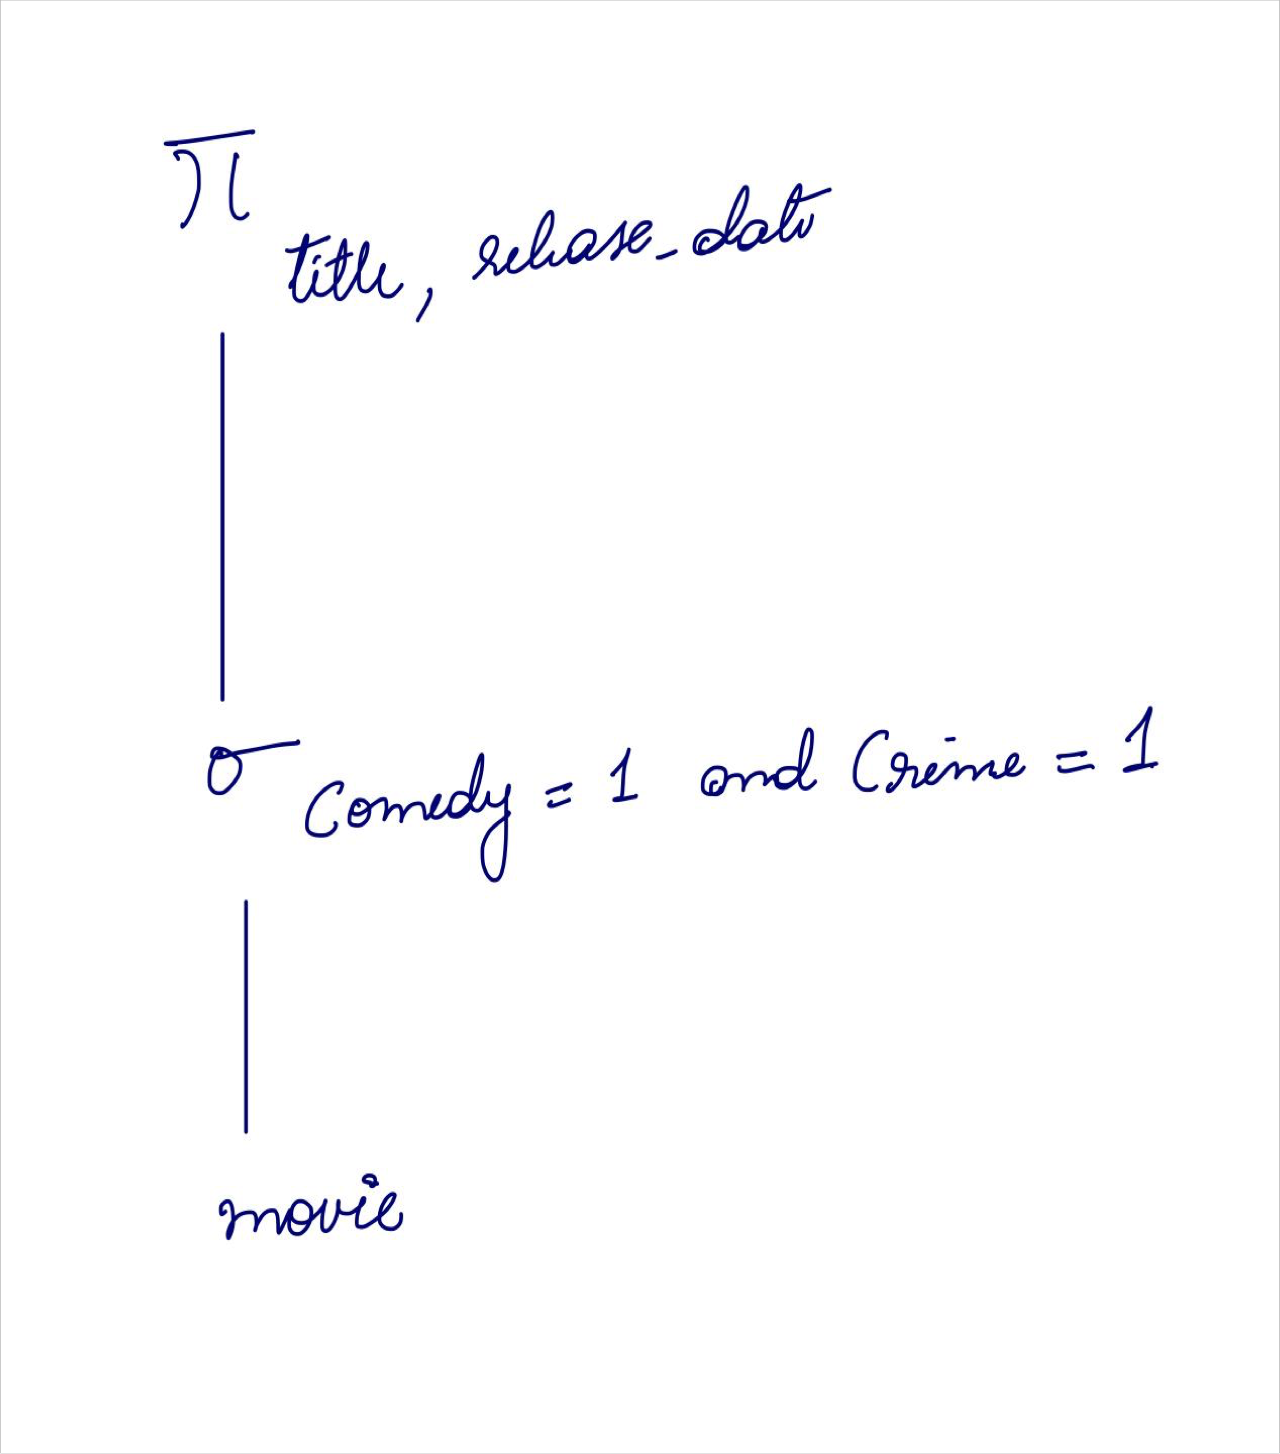 π title, release_date
σ Comedy = 1 and Crime = 1
movie